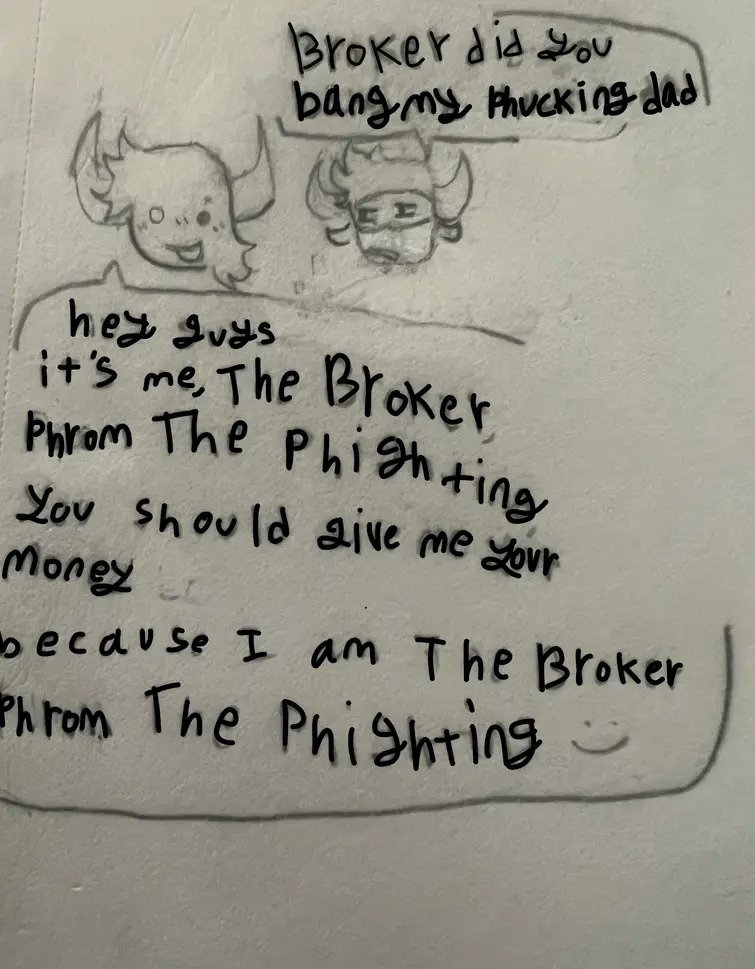 Broker did you
bang my Phucking dad
hey guys
it's me, The Broker
Phrom The Phighting
You should give me your
Money
because I am The Broker
Phrom The Phighting :)